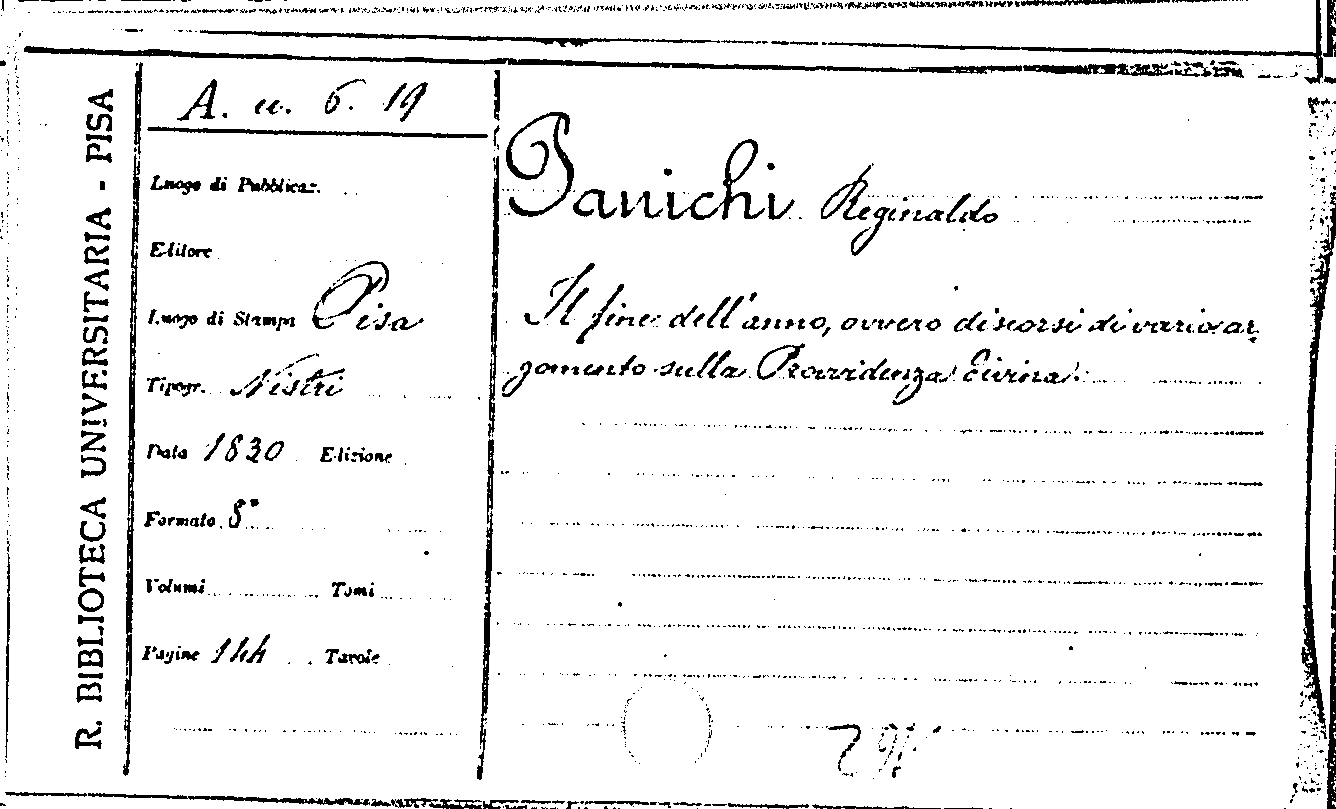 R. BIBLIOTECA UNIVERSITARIA - PISA
A. u. 6. 19
Luogo di Pubblicaz.
Editore
Luogo di Stampa Pisa
Tipogr. Nistri
Data 1830 Edizione
Formato 8°
Volumi Tomi
Pagine 144 Tavole
Panichi Reginaldo
Il fine dell'anno, ovvero discorsi di vario ar
gomento sulla Provvidenza Divina.